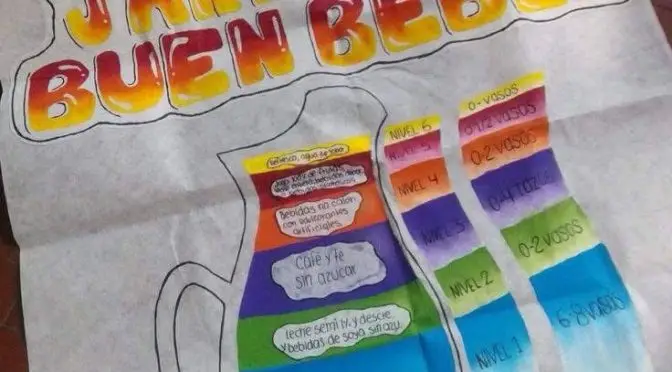 BUEN BEBE
Refresco, agua de sabor
Jugo 100% de frutas
Bebidas no calori
con edulcorantes
artificiales
Café y te
sin azucar
leche semi y descre
y bebidas de soya sin azu
NIVEL 6
NIVEL 5
NIVEL 4
NIVEL 3
NIVEL 2
NIVEL 1
0-VASOS
0-1/2 VASOS
0-2 VASOS
0-4 TAZAS
0-2 VASOS
6-8 VASOS